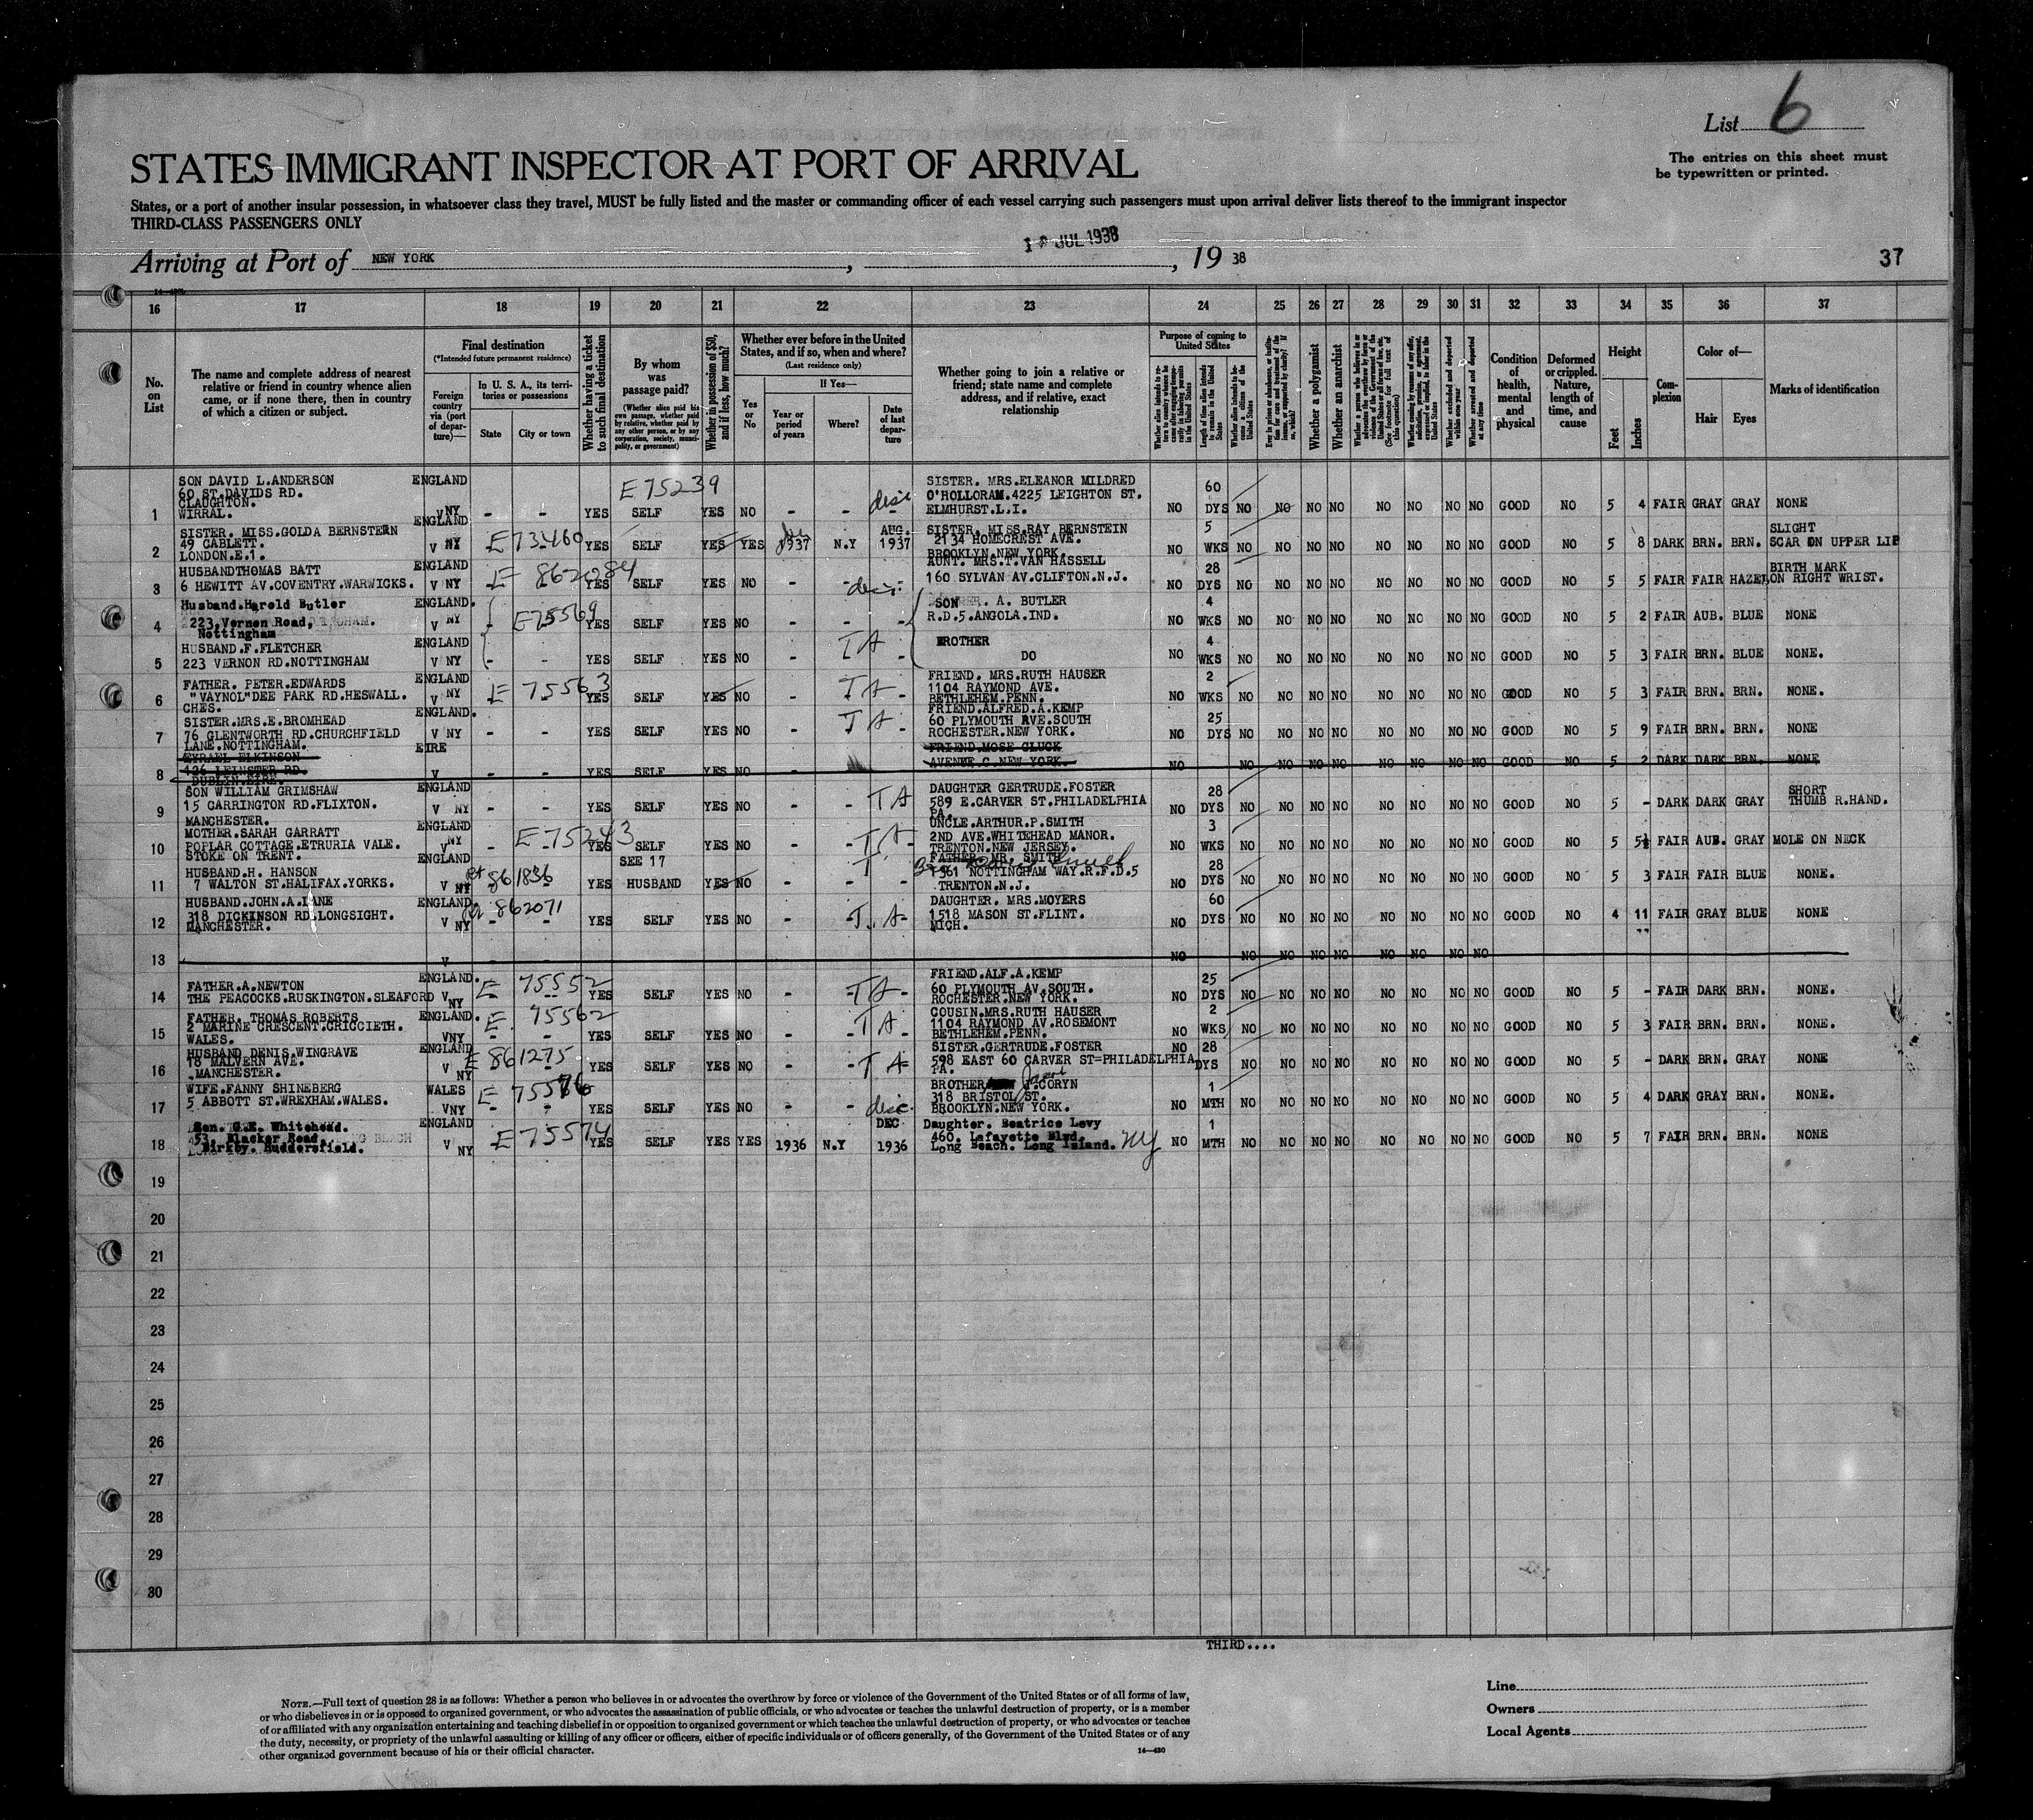 List 6
STATES IMMIGRANT INSPECTOR AT PORT OF ARRIVAL
The entries on this sheet must
be typewritten or printed.
States, or a port of another insular possession, in whatsoever class they travel, MUST be fully listed and the master or commanding officer of each vessel carrying such passengers must upon arrival deliver lists thereof to the immigrant inspector
THIRD-CLASS PASSENGERS ONLY
Arriving at Port of NEW YORK, JUL 1938, 19 38
37
16 17 18 19 20 21 22 23 24 25 26 27 28 29 30 31 32 33 34 35 36 37
No. on List
The name and complete address of nearest
relative or friend in country whence alien
came, or if none there, then in country
of which a citizen or subject.
Final destination
(*Intended future permanent residence)
Foreign country via (port of departure)—
In U. S. A., its territories or possessions
State City or town
Whether having a ticket to such final destination
By whom was passage paid?
(Whether alien paid his own passage, whether paid by relative, whether paid by any other person, or by any corporation, society, municipality, or government)
Whether in possession of $50, and if less, how much?
Whether ever before in the United States, and if so, when and where?
(Last residence only)
Yes or No
If Yes—
Year or period of years
Where?
Date of last departure
Whether going to join a relative or
friend; state name and complete
address, and if relative, exact
relationship
Purpose of coming to United States
Length of time alien intends to remain in the United States
Whether a polygamist
Whether an anarchist
Condition of health, mental and physical
Deformed or crippled. Nature, length of time, and cause
Height
Feet Inches
Complexion
Color of—
Hair Eyes
Marks of identification
SON DAVID L.ANDERSON ENGLAND E75239 SISTER. MRS.ELEANOR MILDRED
60 ST.DAVIDS RD. O'HOLLORAM.4225 LEIGHTON ST. 60
CLAUGHTON. ELMHURST.L.I.
1 WIRRAL. V NY - - YES SELF YES NO - - - NO DYS NO NO NO NO NO NO NO NO GOOD NO 5 4 FAIR GRAY GRAY NONE
SISTER. MISS.GOLDA BERNSTEIN ENGLAND AUG. SISTER. MISS.RAY BERNSTEIN 5 SLIGHT
2 49 CABLETT. V NY E73460 YES SELF YES YES 1937 N.Y 1937 2134 HOMECREST AVE. NO WKS NO NO NO NO NO NO NO NO GOOD NO 5 8 DARK BRN. BRN. SCAR ON UPPER LIP
LONDON.E.1. BROOKLYN.NEW YORK.
HUSBANDTHOMAS BATT ENGLAND AUNT. MRS.T.VAN HASSELL 28 BIRTH MARK
3 6 HEWITT AV.COVENTRY.WARWICKS. V NY E 862084 YES SELF YES NO - - 160 SYLVAN AV.CLIFTON.N.J. NO DYS NO NO NO NO NO NO NO NO GOOD NO 5 5 FAIR FAIR HAZEL ON RIGHT WRIST.
Husband.Harold Butler ENGLAND. SON A. BUTLER 4
4 223,Vernon Road, V NY E75569 YES SELF YES NO - - - R.D.5.ANGOLA.IND. NO WKS NO NO NO NO NO NO NO NO GOOD NO 5 2 FAIR AUB. BLUE NONE
Nottingham
HUSBAND.F.FLETCHER ENGLAND TA BROTHER 4
5 223 VERNON RD.NOTTINGHAM V NY - - YES SELF YES NO - - DO NO WKS NO NO NO NO NO NO NO NO GOOD NO 5 3 FAIR BRN. BLUE NONE.
FATHER. PETER.EDWARDS ENGLAND FRIEND. MRS.RUTH HAUSER 2
6 "VAYNOL"DEE PARK RD.HESWALL. V NY E 75563 YES SELF YES NO - TA - 1104 RAYMOND AVE. NO WKS NO NO NO NO NO NO NO NO GOOD NO 5 3 FAIR BRN. BRN. NONE.
CHES. BETHLEHEM.PENN.
SISTER.MRS.E.BROMHEAD ENGLAND. FRIEND.ALFRED.A.KEMP
7 76 GLENTWORTH RD.CHURCHFIELD V NY - - YES SELF YES NO - TA - 60 PLYMOUTH AVE.SOUTH 25 NO DYS NO NO NO NO NO NO NO NO GOOD NO 5 9 FAIR BRN. BRN. NONE
LANE.NOTTINGHAM. ROCHESTER.NEW YORK.
EIRE FRIEND.MOSE GLUCK
8 LEINSTER RD. DUBLIN.EIRE. V - - YES SELF YES NO - AVENUE.C.NEW YORK. NO NO NO NO NO NO NO NO NO GOOD NO 5 2 DARK DARK BRN. NONE
SON WILLIAM GRIMSHAW ENGLAND DAUGHTER GERTRUDE.FOSTER 28 SHORT
9 15 CARRINGTON RD.FLIXTON. V NY - - YES SELF YES NO - - TA 589 E.CARVER ST.PHILADELPHIA NO DYS NO NO NO NO NO NO NO NO GOOD NO 5 - DARK DARK GRAY THUMB R.HAND.
MANCHESTER. PA.
MOTHER.SARAH GARRATT ENGLAND UNCLE.ARTHUR.P.SMITH 3
10 POPLAR COTTAGE.ETRURIA VALE. V NY - E75243 YES SELF YES NO - TA - 2ND AVE.WHITEHEAD MANOR. NO WKS NO NO NO NO NO NO NO NO GOOD NO 5 5½ FAIR AUB. GRAY MOLE ON NECK
STOKE ON TRENT. TRENTON.NEW JERSEY.
HUSBAND.H. HANSON ENGLAND SEE 17 T FATHER. MR. SMITH 28
11 7 WALTON ST.HALIFAX.YORKS. V NY 861836 YES HUSBAND YES NO - - - 1961 NOTTINGHAM WAY.R.F.D.5 NO DYS NO NO NO NO NO NO NO NO GOOD NO 5 3 FAIR FAIR BLUE NONE.
TRENTON.N.J.
HUSBAND.JOHN.A.LANE ENGLAND. 862071 DAUGHTER. MRS.MOYERS 60
12 318 DICKINSON RD.LONGSIGHT. V NY - - YES SELF YES NO - T.A- 1518 MASON ST.FLINT. NO DYS NO NO NO NO NO NO NO NO GOOD NO 4 11 FAIR GRAY BLUE NONE
MANCHESTER. MICH.
13 V - - NO NO NO NO NO NO NO NO NO
FATHER.A.NEWTON ENGLAND. E 75552 FRIEND.ALF.A.KEMP 25
14 THE PEACOCKS.RUSKINGTON.SLEAFORD V NY - - YES SELF YES NO - -TA- 60 PLYMOUTH AV.SOUTH. NO DYS NO NO NO NO NO NO NO NO GOOD NO 5 - FAIR DARK BRN. NONE.
ROCHESTER.NEW YORK.
FATHER. THOMAS ROBERTS ENGLAND. E. 75562 COUSIN.MRS.RUTH HAUSER 2
15 2 MARINE CRESCENT.CRICCIETH. VNY - - YES SELF YES NO - TA - 1104 RAYMOND AV.ROSEMONT NO WKS NO NO NO NO NO NO NO NO GOOD NO 5 3 FAIR BRN. BRN. NONE.
WALES. BETHLEHEM.PENN.
HUSBAND DENIS.WINGRAVE ENGLAND E 861275 SISTER.GERTRUDE.FOSTER NO 28
16 18 MALVERN AVE. V NY YES SELF YES NO - - TA 598 EAST 60 CARVER ST=PHILADELPHIA DYS NO NO NO NO NO NO NO NO GOOD NO 5 - DARK BRN. GRAY NONE
MANCHESTER. PA.
WIFE.FANNY SHINEBERG WALES E 75576 BROTHER .CORYN 1
17 5 ABBOTT ST.WREXHAM.WALES. VNY - - YES SELF YES NO - - 318 BRISTOL ST. NO MTH NO NO NO NO NO NO NO NO GOOD NO 5 4 DARK GRAY BRN. NONE.
BROOKLYN.NEW YORK.
Son. G.E. Whitehead. ENGLAND DEC Daughter. Beatrice Levy 1
18 53. Blacker Road. V NY -E75574 YES SELF YES YES 1936 N.Y 1936 460. Lafayette Blvd. NO MTH NO NO NO NO NO NO NO NO GOOD NO 5 7 FAIR BRN. BRN. NONE
Birkby. Huddersfield. Long Beach. Long Island. NY
19
20
21
22
23
24
25
26
27
28
29
30
THIRD....
NOTE.—Full text of question 28 is as follows: Whether a person who believes in or advocates the overthrow by force or violence of the Government of the United States or of all forms of law,
or who disbelieves in or is opposed to organized government, or who advocates the assassination of public officials, or who advocates or teaches the unlawful destruction of property, or is a member
of or affiliated with any organization entertaining and teaching disbelief in or opposition to organized government or which teaches the unlawful destruction of property, or who advocates or teaches
the duty, necessity, or propriety of the unlawful assaulting or killing of any officer or officers, either of specific individuals or of officers generally, of the Government of the United States or of any
other organized government because of his or their official character.
14—430
Line
Owners
Local Agents